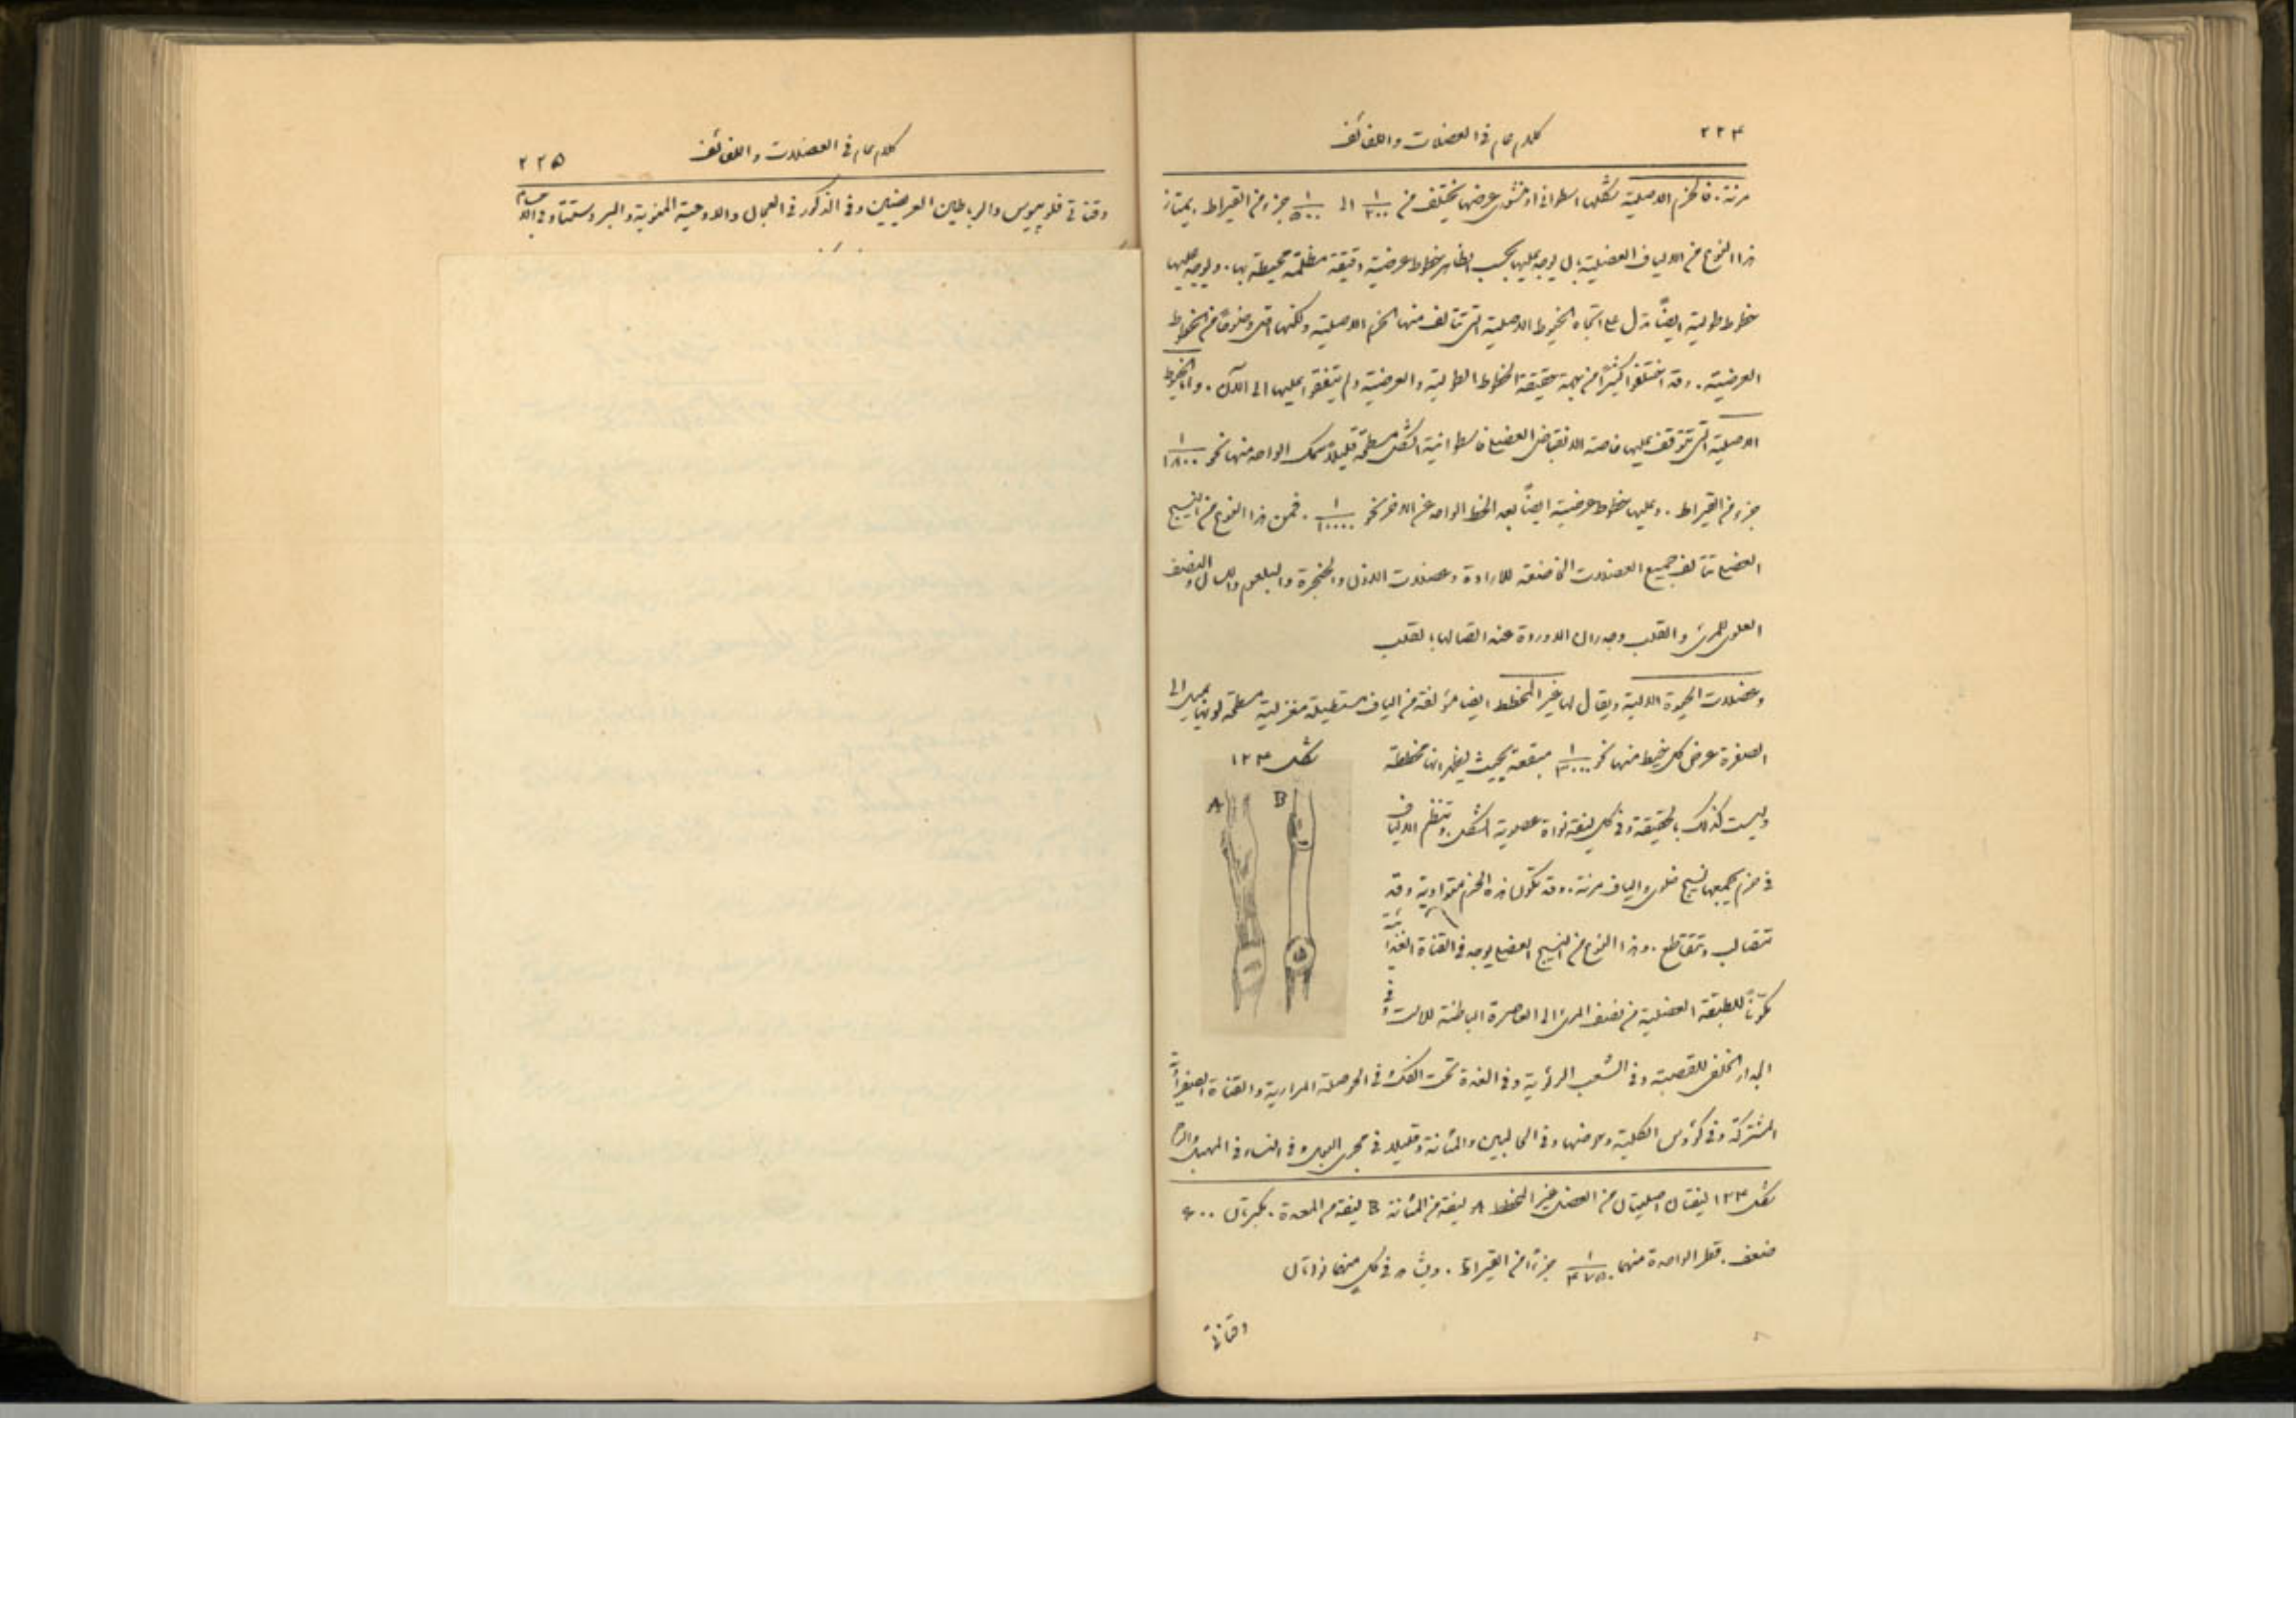 ٢٢٤
كلام عام في العضلات واللفائف
مرنة. فالحزم الاصلية شكلها اسطواني او منشوري عرضها يختلف من ١/٢٠٠ الى ١/٥٠٠ جزء من القيراط. يمتاز
هذا النوع من الالياف العضلية بان يوجد عليها بحسب الظاهر خطوط عرضية دقيقة مظلمة محيطة بها. ويوجد عليها
خطوط طولية ايضاً تدل على اتجاه الخيوط الاصلية التي تتالف منها الحزم الاصلية ولكنها اقل وضوحاً من الخطوط
العرضية. وقد اختلفوا كثيراً من جهة حقيقة الخطوط الطولية والعرضية ولم يتفقوا عليها الى الآن. واما الخيوط
الاصلية التي تتوقف عليها خاصة الانقباض العضلي فاسطوانية الشكل مسطحة قليلاً سمك الواحد منها نحو ١/١٨٠٠٠
جزء من القيراط. وعليها خطوط عرضية ايضاً بعد الخط الواحد عن الاخر نحو ١/١٠٠٠٠. فمن هذا النوع من النسيج
العضلي تتالف جميع العضلات الخاضعة للارادة وعضلات الاذن والحنجرة والبلعوم واللسان والنصف
العلوي للمري والقلب وجدران الاوردة عند اتصالها بالقلب
وعضلات الحيوة الالية ويقال لها غير المخطط ايضا مؤلفة من الياف مستطيلة مغزلية مسطحة لونها يميل الى
الصفرة عرض كل خيط منها نحو ١/٣٠٠٠ مبقعة بحيث يظهر انها مخططة
وليست كذلك بالحقيقة وفي كل ليفة نواة عصوية الشكل. وتنظم الالياف
في حزم يجمعها نسيج خلوي والياف مرنة. وقد تكون هذه الحزم متوازية وقد
تتصالب وتتقاطع. وهذا النوع من النسيج العضلي يوجد في القناة الغذائية
مكوناً للطبقة العضلية من نصف المري الى العاصرة الباطنة للاست وفي
شكل ١٢٤
A B
الجدار الخلفي للقصبة وفي الشعب الرئوية وفي الغدة تحت الفك وفي الحوصلة المرارية والقناة الصفرائية
المشتركة وفي كؤوس الكلية وحوضها وفي الحالبين والمثانة وقليلا في مجرى البول وفي النساء في المهبل والرحم
شكل ١٢٤ ليفتان اصليتان من العضل غير المخطط A ليفة من المثانة B ليفة من المعدة. مكبرتان ٦٠٠
ضعف. قطر الواحدة منهما ١/٤٧٥٠ جزءًا من القيراط. ويشاهد في كل منهما نواتان
وقناتي
كلام عام في العضلات واللفائف
٢٢٥
وقناتي فلوبيوس والرباطين العريضين وفي الذكور في العجان والاوعية المنوية والبروستتا وفي الاجسام